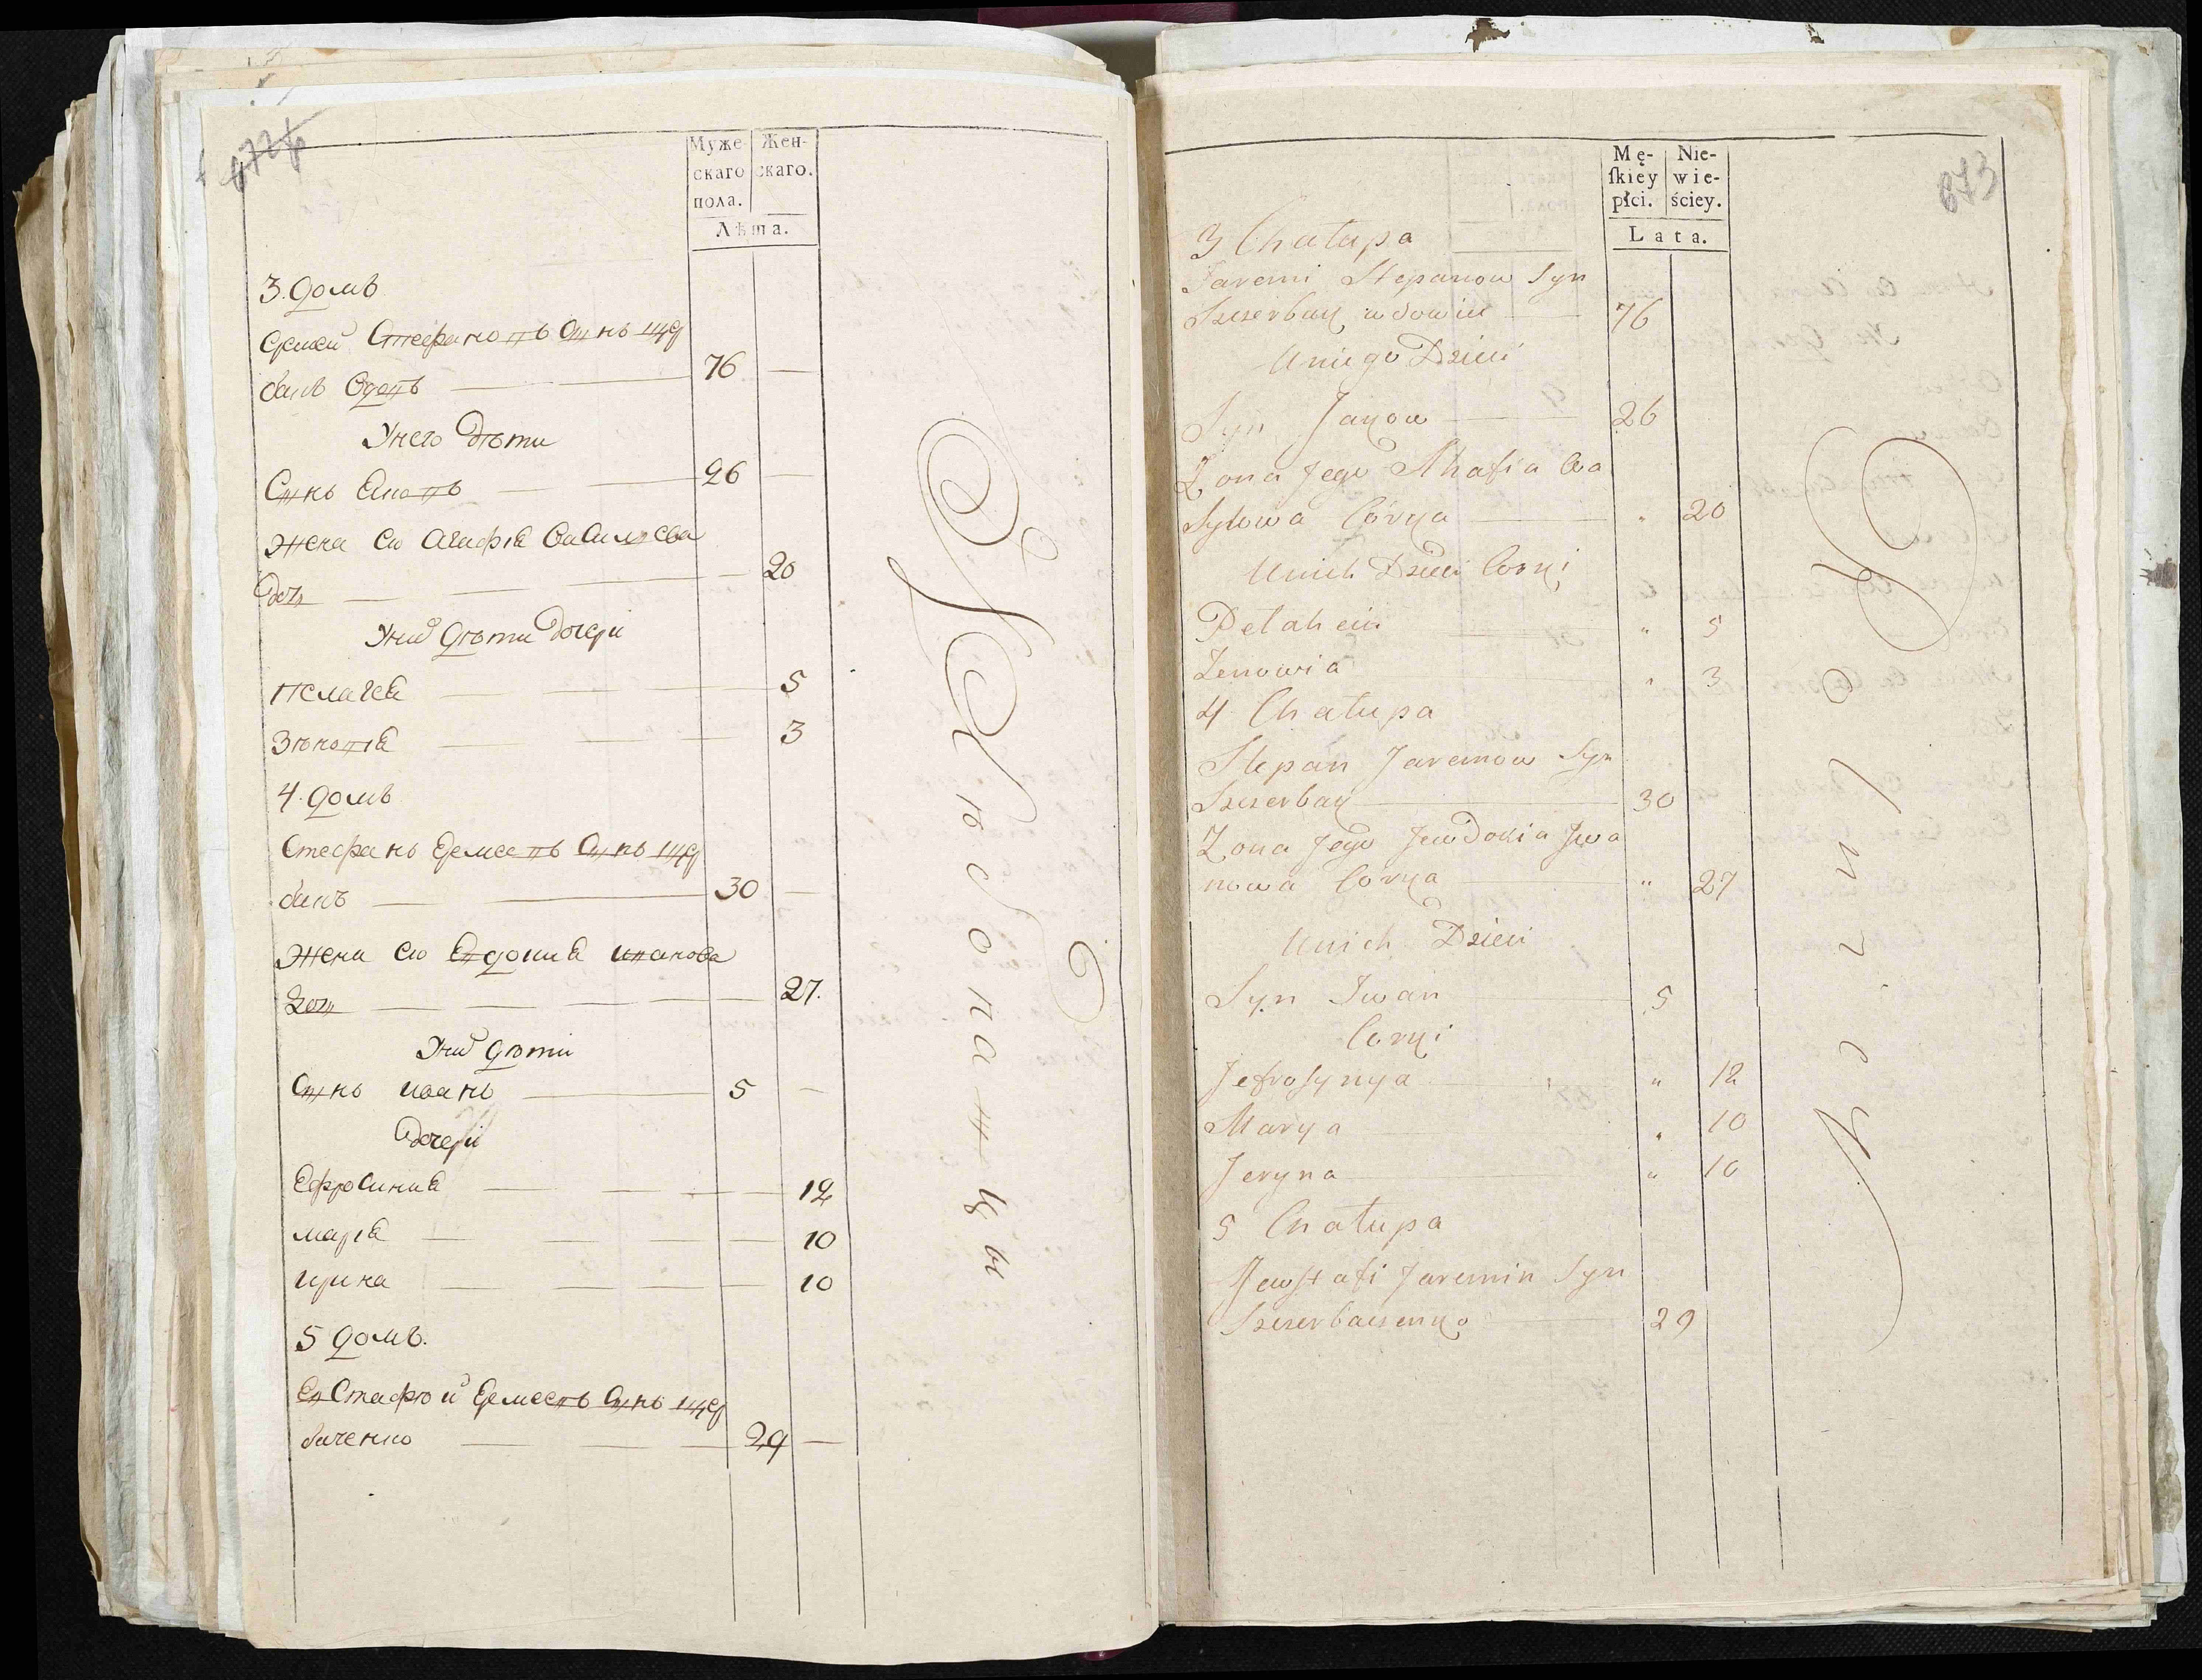 672 об
Муже-
скаго
пола.
Жен-
скаго.
Лѣта.
3. домъ
Еремѣй Стефановъ Сынъ Щер
бакъ Вдовъ 76
У него дѣти
Сынъ Яковъ 26
Жена Ею Агафія Василева
дочь 20
У них дѣти дочери
Пелагея 5
Зѣновія 3
4. домъ
Стефанъ Еремеевъ Сынъ Щер
бакъ 30
Жена Ею Евдокия Иванова
дочь 27.
У них дѣти
Сынъ Иванъ 5
дочери
Ефросиния 12
Марія 10
Ирина 10
5 домъ.
Евстафѣй Еремеевъ Сынъ Щер
баченко 29
673
Mę-
ſkiey
płci.
Nie-
wie-
ściey.
Lata.
3 Chałupa
Jaremi Stepanow Syn
Szczerbak wdowiec 76
U niego Dzieci
Syn Jakow 26
Zona Jego Ahafia Wa
Sylowa Corka " 20
U nich Dzieci Corki
Pelaheia " 5
Zenowia " 3
4 Chałupa
Stepan Jaremow Syn
Szczerbak 30
Zona Jego Jewdokia Jwa
nowa Corka " 27
U nich Dzieci
Syn Iwan 5
Corki
Jefrosynya " 12
Marya " 10
Jeryna " 10
5 Chałupa
Jewstafi Jaremin Syn
Szczerbaczenko 29